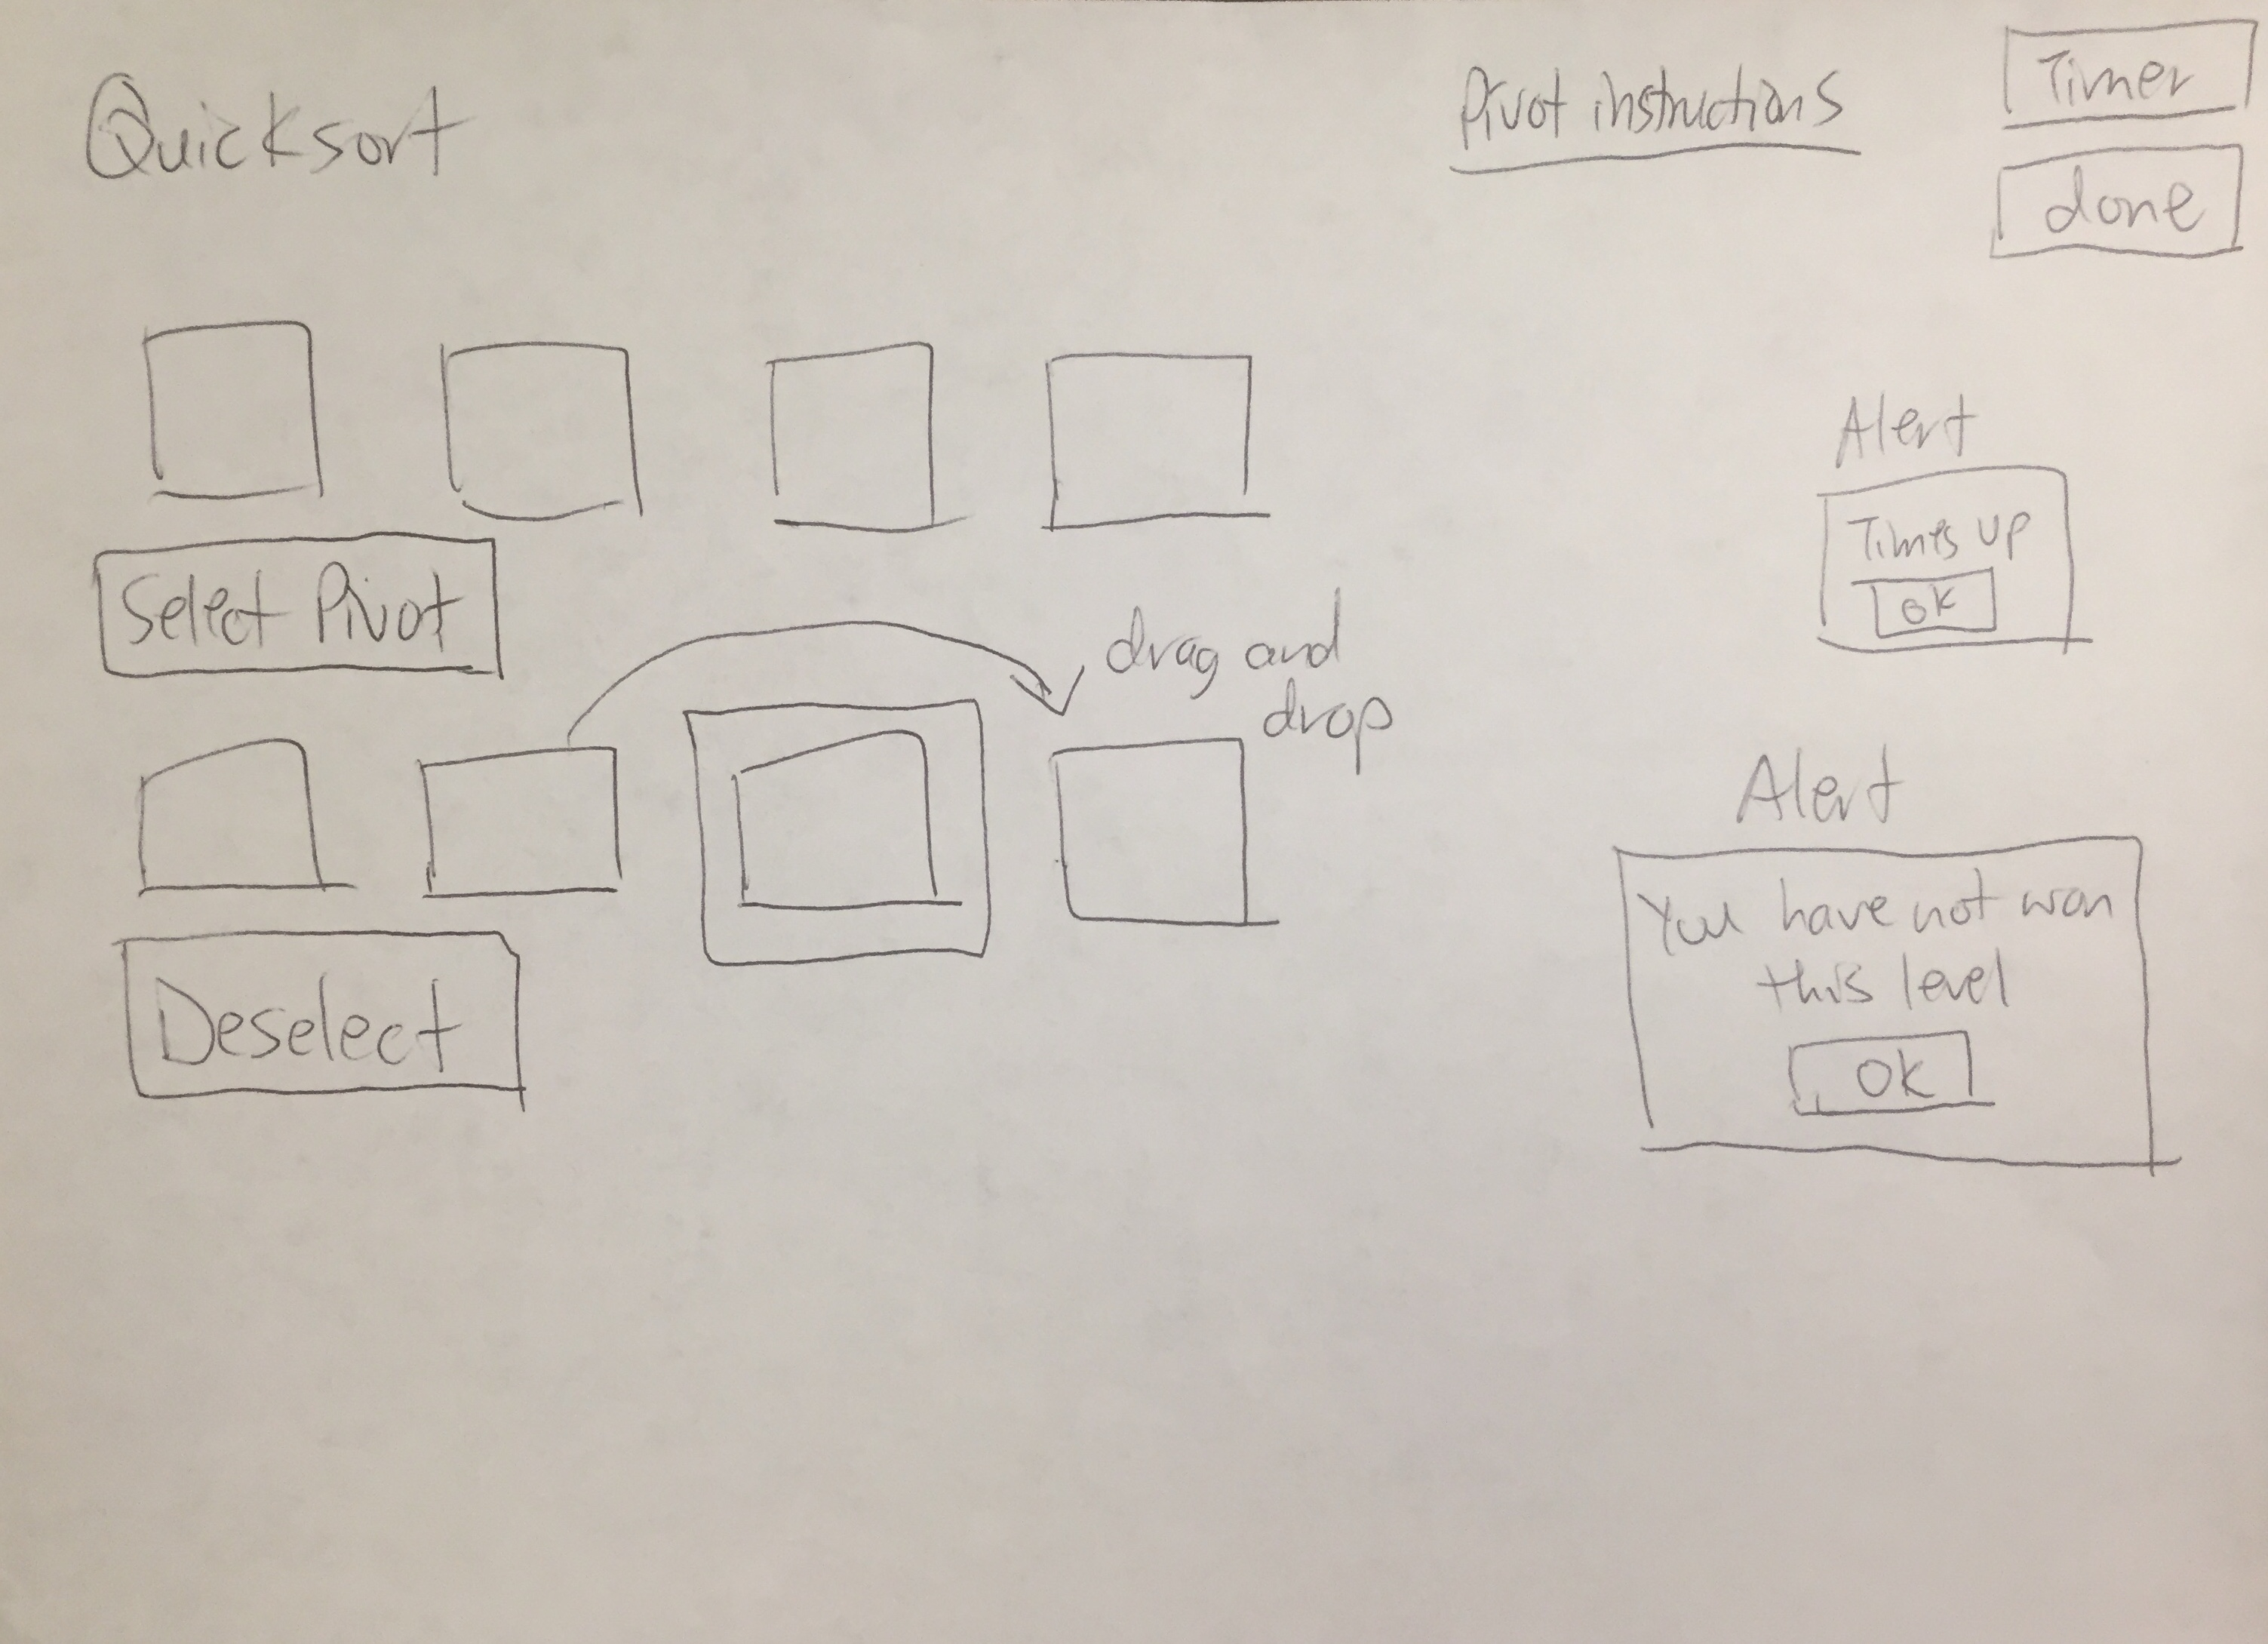 Quicksort
Pivot instructions
Timer
done
Select Pivot
drag and
drop
Deselect
Alert
Times up
OK
Alert
You have not won
this level
OK